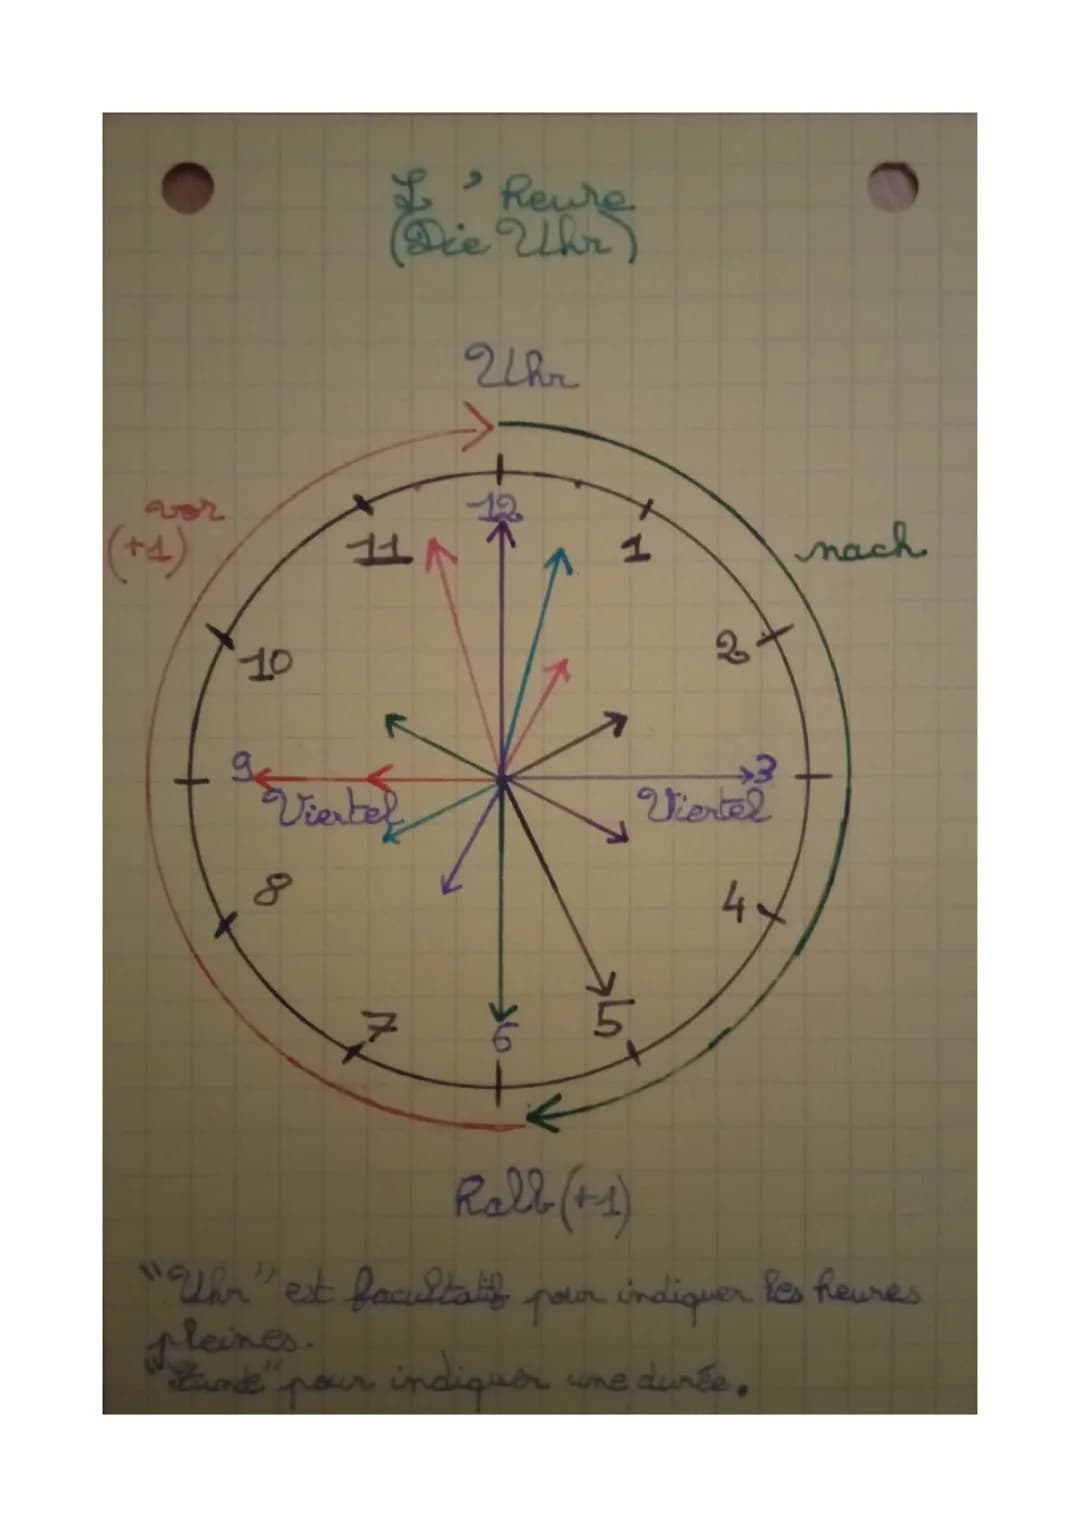 L'heure
(Die Uhr)
Uhr
vor
(+1)
nach
12
11
1
10
2
9
3
Viertel
Viertel
8
4
7
5
6
Halb (+1)
"Uhr" est facultatif pour indiquer les heures
pleines.
pour indiquer une durée.